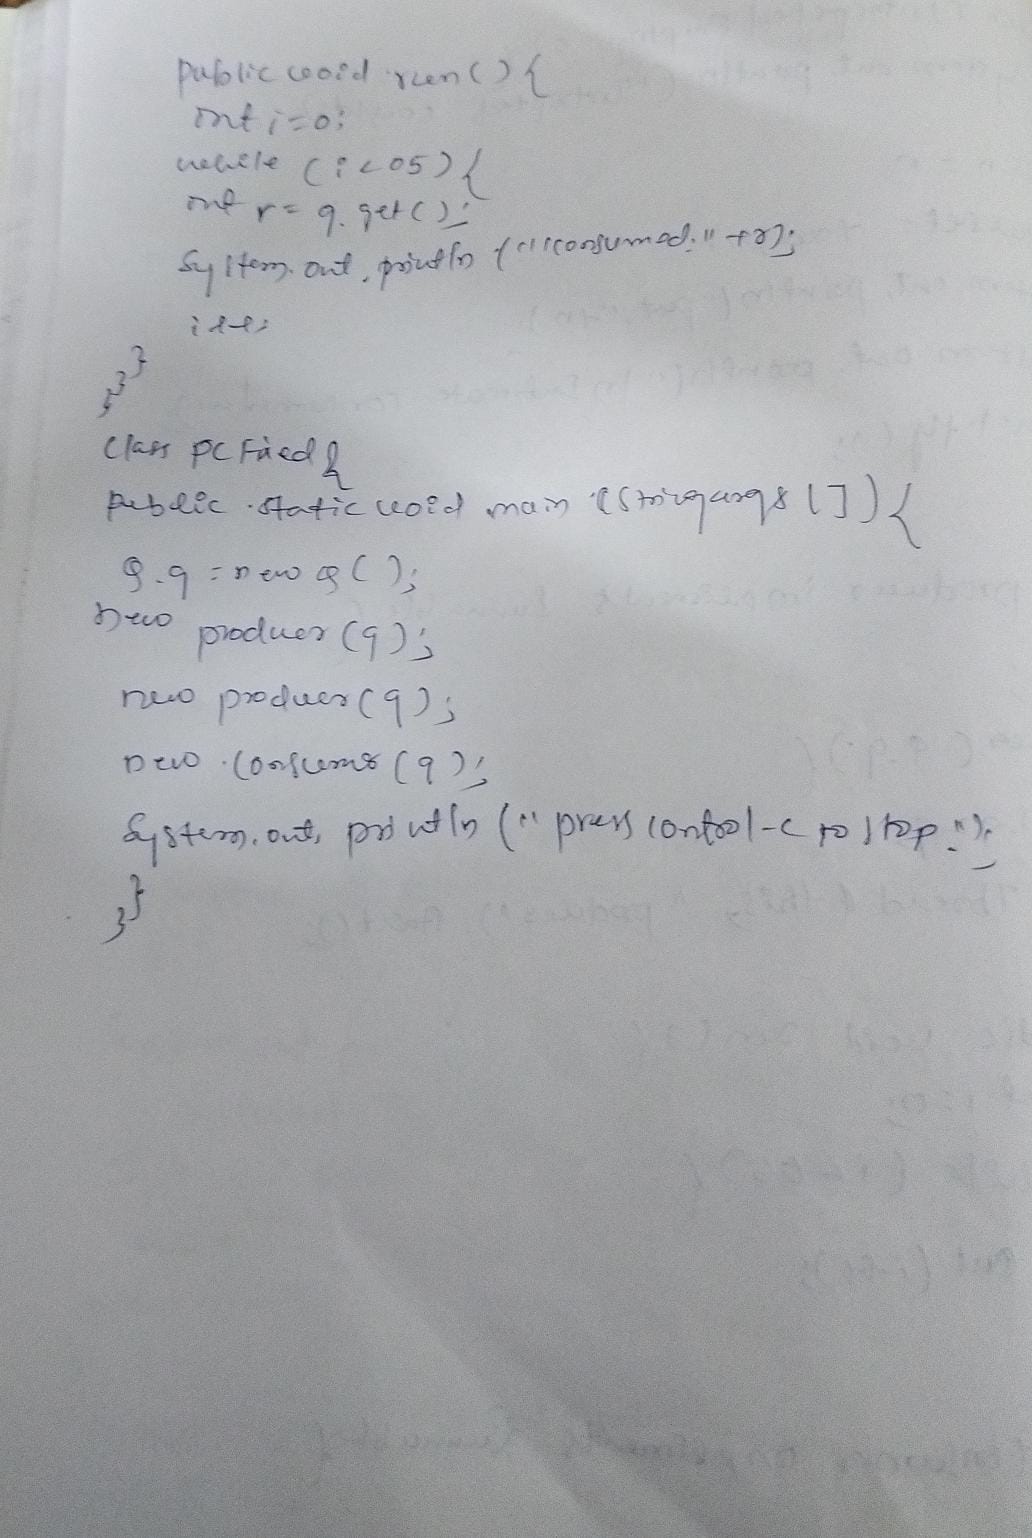 public void run(){
int i=0;
while (i<05){
int r= q.get();
System.out.println ("consumed:"+r);
i++;
}
}
}
class PC Fixed{
public static void main (String args []){
Q.q = new Q();
new producer (q);
new producer (q);
new consumer (q);
System.out.println ("press control-c to stop.");
}
}